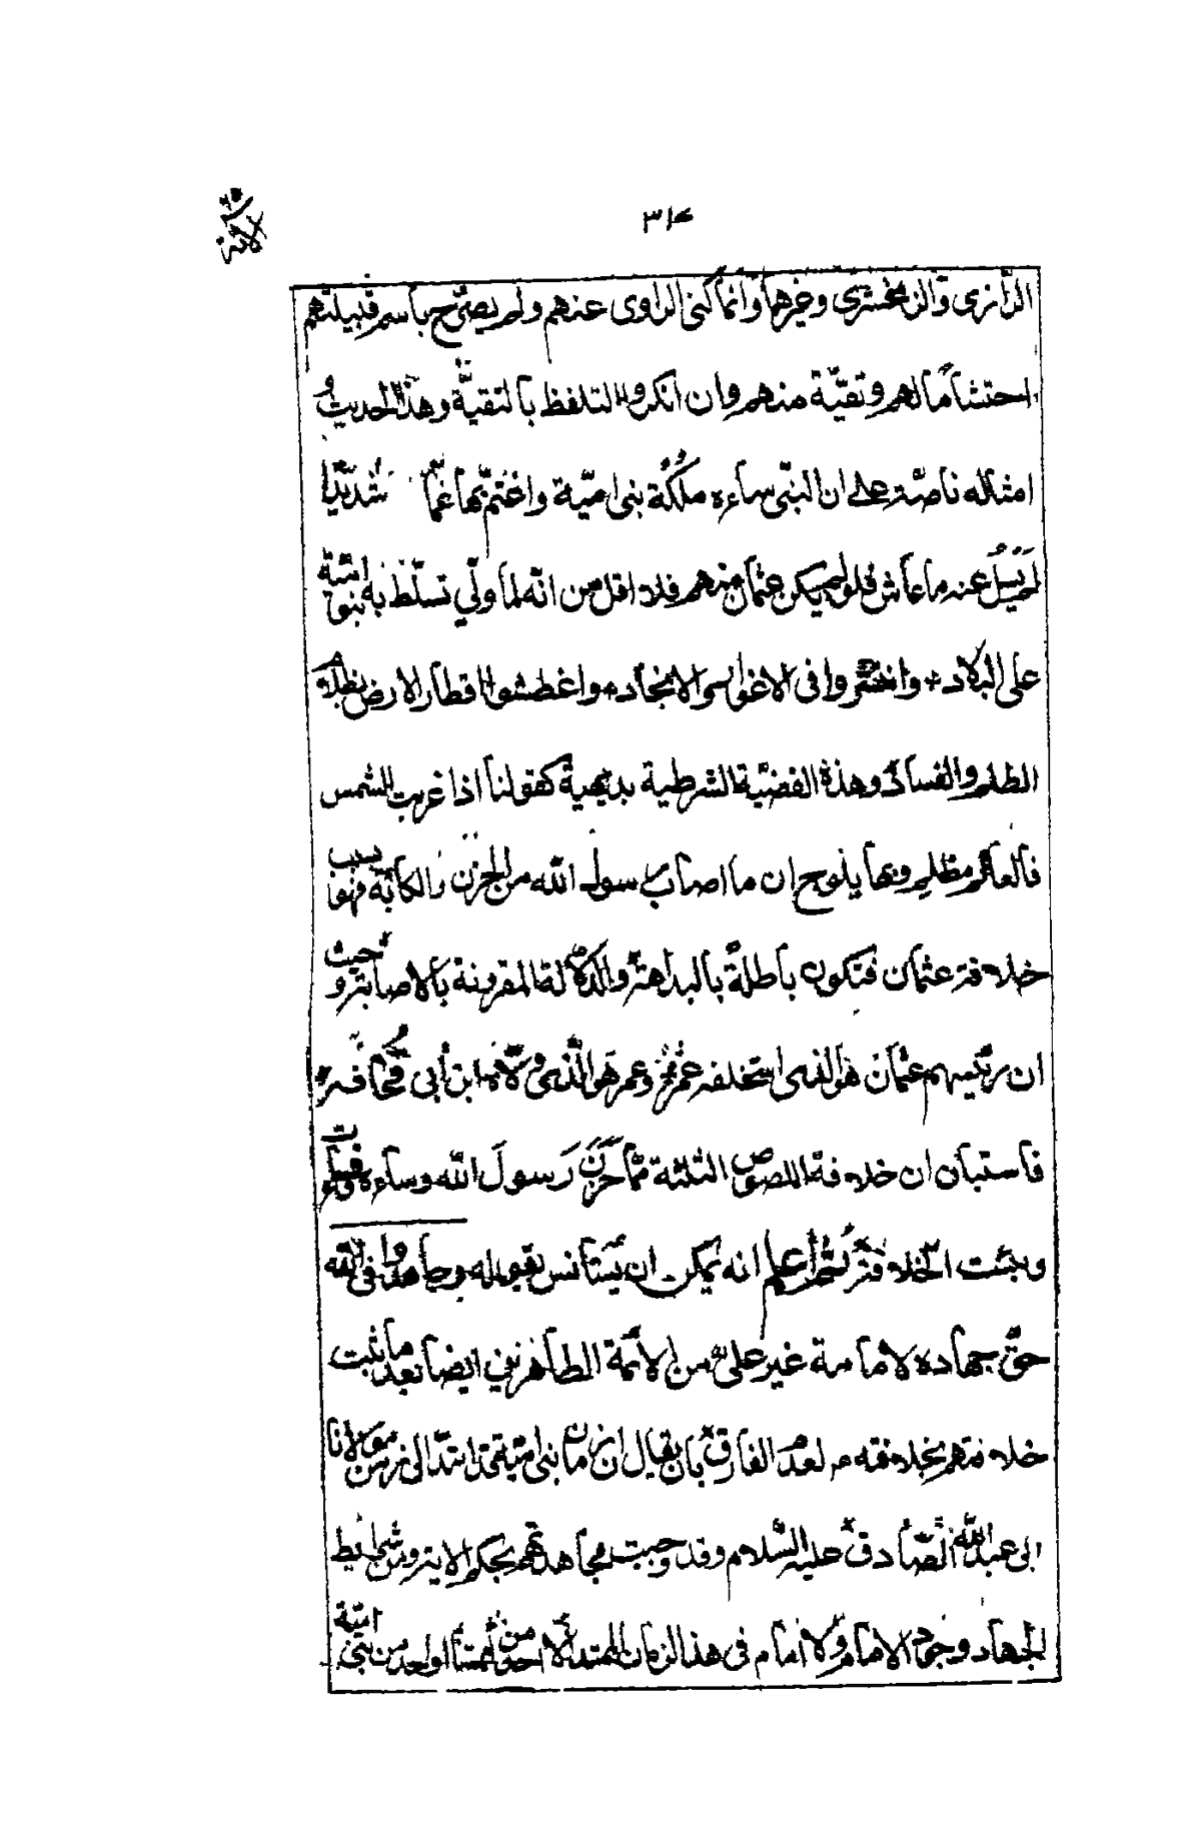 ٣١٤
الرازي والزمخشري وغيرهما وانما كنى الراوي عنهم ولم يصرّح باسم قبيلتهم
احتشاما لهم وتقيّة منهم وان انكروا التلفظ بالتقيّة وهذا الحديث و
امثاله ناصّة على ان النبّي ساءه مملكة بني اميّة واغتمّ بها غمّا شديدا
لم يسل عنه ما عاش فلو لم يكن عثمان منهم فلا اقل من انّه لما ولّي تسلّط به بنو اميّة
على البلاد وانتشروا في الاغوار والانجاد واغطشوا اقطار الارض بظلمة
الظلم والفساد وهذه القضيّة الشرطية بديهية كقولنا اذا غربت الشمس
فالعالم مظلم وبها يلوح ان ما اصاب رسول الله من الحزن والكآبة فهو بسبب
خلافة عثمان فتكون باطلة بالبداهة والدلالة المقرونة بالاصابة وحيث
ان رئيسهم عثمان هو الذي استخلفه عمر وعمر هو الذي ولّاه ابن أبي قحافة
فاستبان ان خلافة اللصوص الثلثة ممّا حزّن رسول الله وساءه
وبئست الخلافة ثم أعلم انه يمكن ان يستأنس بقوله وجاهدوا في الله
حقّ جهاده لامامة غير علي من الأئمة الطاهرين ايضا بعد ما ثبت
خلافتهم بخلافته لعدم الفارق بأن يقال ان زمان بني اميّة قد امتدّ الى زمن مولانا
ابي عبد الله الصّادق عليه السّلام وقد وجبت مجاهدتهم بحكم الاية ومن شرائط
الجهاد وجود الامام ولا امام في هذا الزمان الممتد الا احد من أئمتنا او احد من بني اميّة